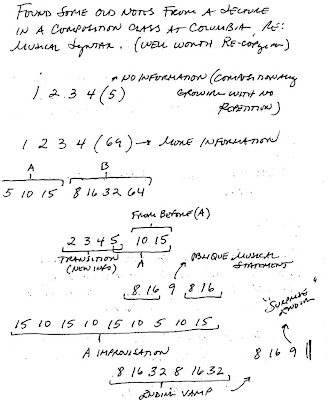 FOUND SOME OLD NOTES FROM A LECTURE
IN A COMPOSITION CLASS AT COLUMBIA, RE:
MUSICAL SYNTAX. (WELL WORTH RE-COPYING)
* NO INFORMATION (COMPOSITIONALLY
1 2 3 4 (5) GROWING WITH NO
REPETITION)
1 2 3 4 (69) → MORE INFORMATION
A B
5 10 15 8 16 32 64
FROM BEFORE (A)
2 3 4 5 10 15
TRANSITION A OBLIQUE MUSICAL
(NEW INFO) STATEMENT
8 16 9 8 16
15 10 15 10 15 10 5 10 15 "SURPRISE
ENDING"
A IMPROVISATION
8 16 32 8 16 32 8 16 9
ENDING VAMP